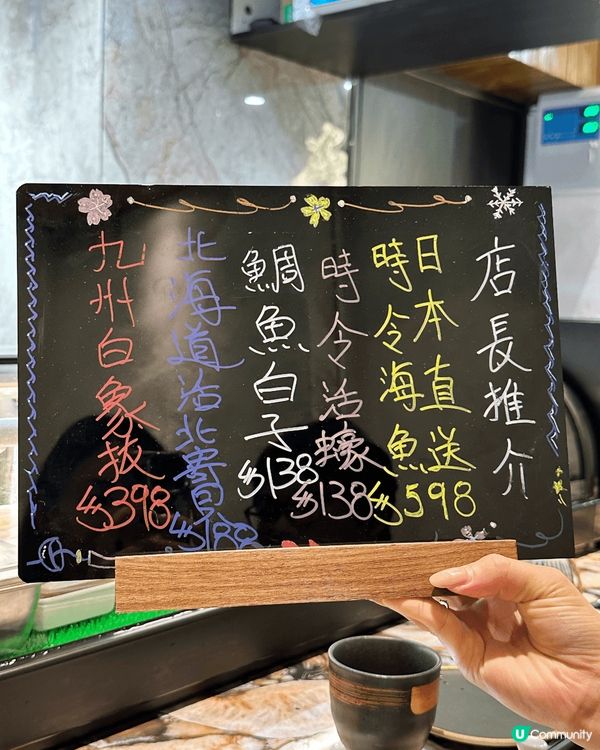 店長推介
日本直送
時令海魚 $598
時令活蠔 $138
鯛魚白子 $138
北海道活北寄貝 $188
九州白象拔 $398
U Community